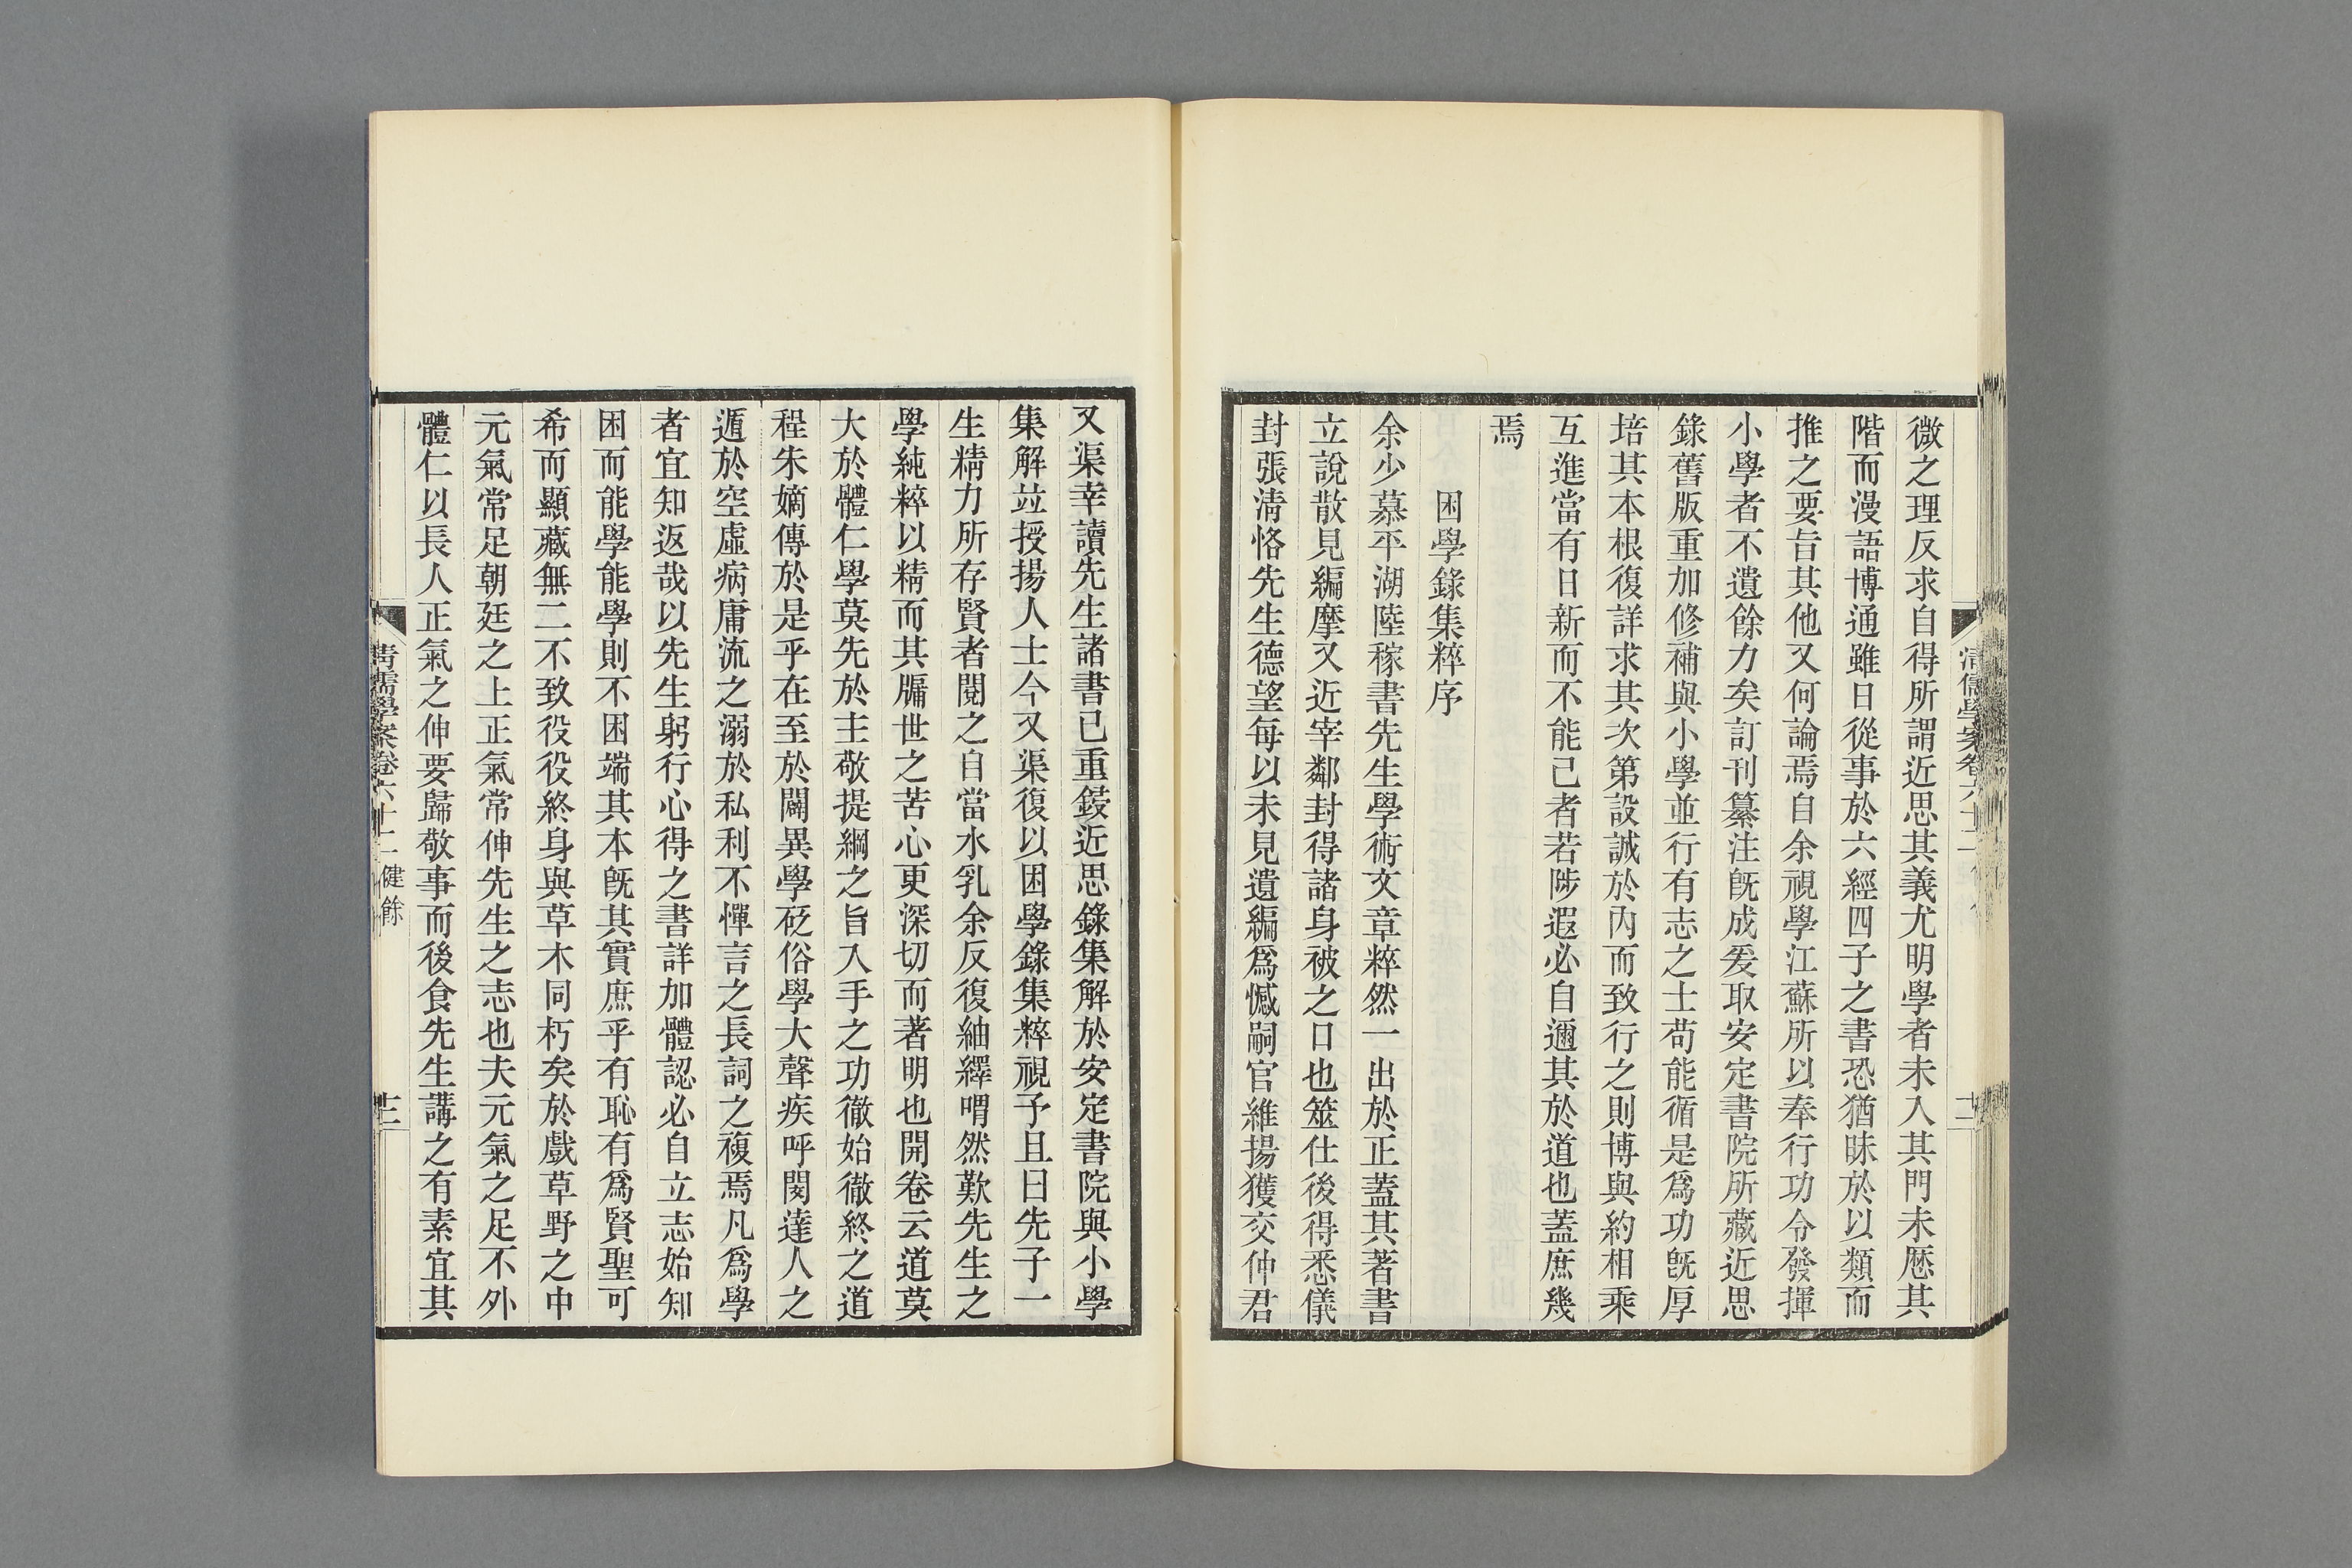 微之理反求自得所謂近思其義尤明學者未入其門未歷其
階而漫語博通雖日從事於六經四子之書恐猶昧於以類而
推之要旨其他又何論焉自余視學江蘇所以奉行功令發揮
小學者不遺餘力矣訂刊纂注旣成爰取安定書院所藏近思
錄舊版重加修補與小學並行有志之士苟能循是爲功旣厚
培其本根復詳求其次第設誠於內而致行之則博與約相乘
互進當有日新而不能已者若陟遐必自邇其於道也蓋庶幾
焉
困學錄集粹序
余少慕平湖陸稼書先生學術文章粹然一出於正蓋其著書
立說散見編摩又近宰鄰封得諸身被之口也筮仕後得悉儀
封張淸恪先生德望每以未見遺編爲憾嗣官維揚獲交仲君
又渠幸讀先生諸書已重鋟近思錄集解於安定書院與小學
集解竝授揚人士今又渠復以困學錄集粹視予且曰先子一
生精力所存賢者閱之自當水乳余反復紬繹喟然歎先生之
學純粹以精而其牖世之苦心更深切而著明也開卷云道莫
大於體仁學莫先於主敬提綱之旨入手之功徹始徹終之道
程朱嫡傳於是乎在至於闢異學砭俗學大聲疾呼閔達人之
遁於空虛病庸流之溺於私利不憚言之長詞之複焉凡爲學
者宜知返哉以先生躬行心得之書詳加體認必自立志始知
困而能學能學則不困端其本旣其實庶乎有恥有爲賢聖可
希而顯藏無二不致役役終身與草木同朽矣於戲草野之中
元氣常足朝廷之上正氣常伸先生之志也夫元氣之足不外
體仁以長人正氣之伸要歸敬事而後食先生講之有素宜其
清儒學案卷六十二 健餘